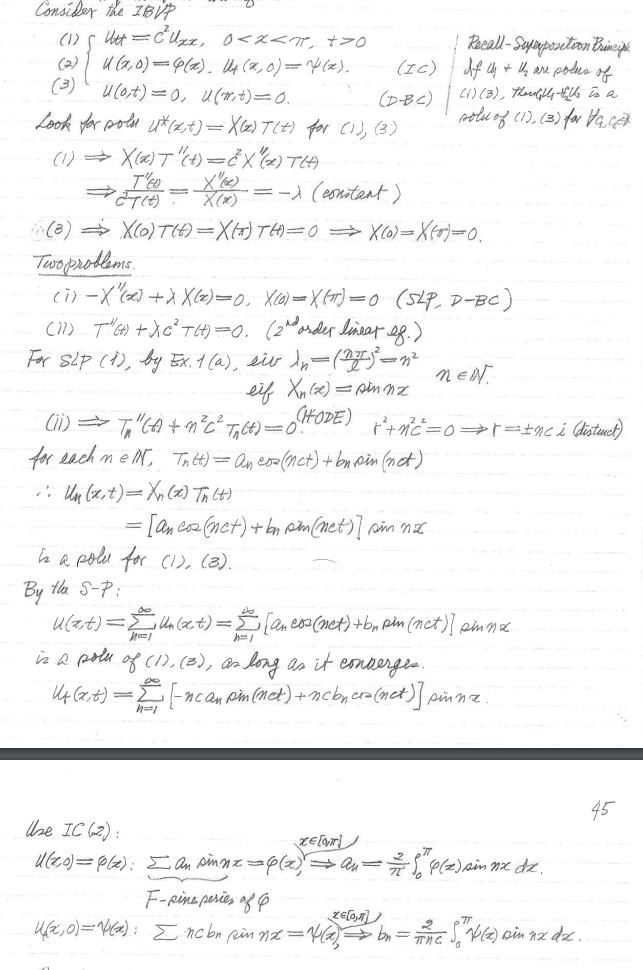 Consider the IBVP
(1) { Utt = c²Uxx, 0<x<π, t>0
(2) U(x,0) = φ(x), Ut(x,0) = Ψ(x). (IC)
(3) U(0,t) = 0, U(π,t) = 0. (D-BC)
Recall-Superposition Principle
If U₁ + U₂ are solns of
(1)(3), then
is a
soln of (1), (3) for
Look for soln U*(x,t) = X(x) T(t) for (1), (3)
(1) ⇒ X(x)T''(t) = c²X''(x)T(t)
⇒ T''(t)/c²T(t) = X''(x)/X(x) = -λ (constant)
(3) ⇒ X(0)T(t) = X(π)T(t) = 0 ⇒ X(0) = X(π) = 0.
Two problems.
(i) -X''(x) + λX(x) = 0, X(0) = X(π) = 0 (SLP, D-BC)
(ii) T''(t) + λc²T(t) = 0. (2nd order linear eq.)
For SLP (1), by Ex. 1(a), eiv λn = (nπ/l)² = n²
eif Xn(x) = sin nx n ∈ ℕ.
(ii) ⇒ Tn''(t) + n²c²Tn(t) = 0. (HODE) r² + n²c² = 0 ⇒ r = ±nci (distinct)
for each n ∈ ℕ, Tn(t) = an cos(nct) + bn sin(nct)
∴ Un(x,t) = Xn(x) Tn(t)
= [an cos(nct) + bn sin(nct)] sin nx
is a soln for (1), (3).
By the S-P:
U(x,t) = ∑_{n=1}^{∞} Un(x,t) = ∑_{n=1}^{∞} [an cos(nct) + bn sin(nct)] sin nx
is a soln of (1), (3), as long as it converges.
Ut(x,t) = ∑_{n=1}^{∞} [-ncan sin(nct) + ncbn cos(nct)] sin nx.
45
Use IC (2):
U(x,0) = φ(x): ∑ an sin nx = φ(x), x∈[0,π] ⇒ an = 2/π ∫₀^π φ(x) sin nx dx.
F-sine series of φ
Ut(x,0) = Ψ(x): ∑ ncbn sin nx = Ψ(x), x∈[0,π] ⇒ bn = 2/πnc ∫₀^π Ψ(x) sin nx dx.